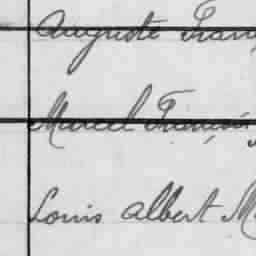 Auguste Fran
Marcel François
Louis Albert Ma